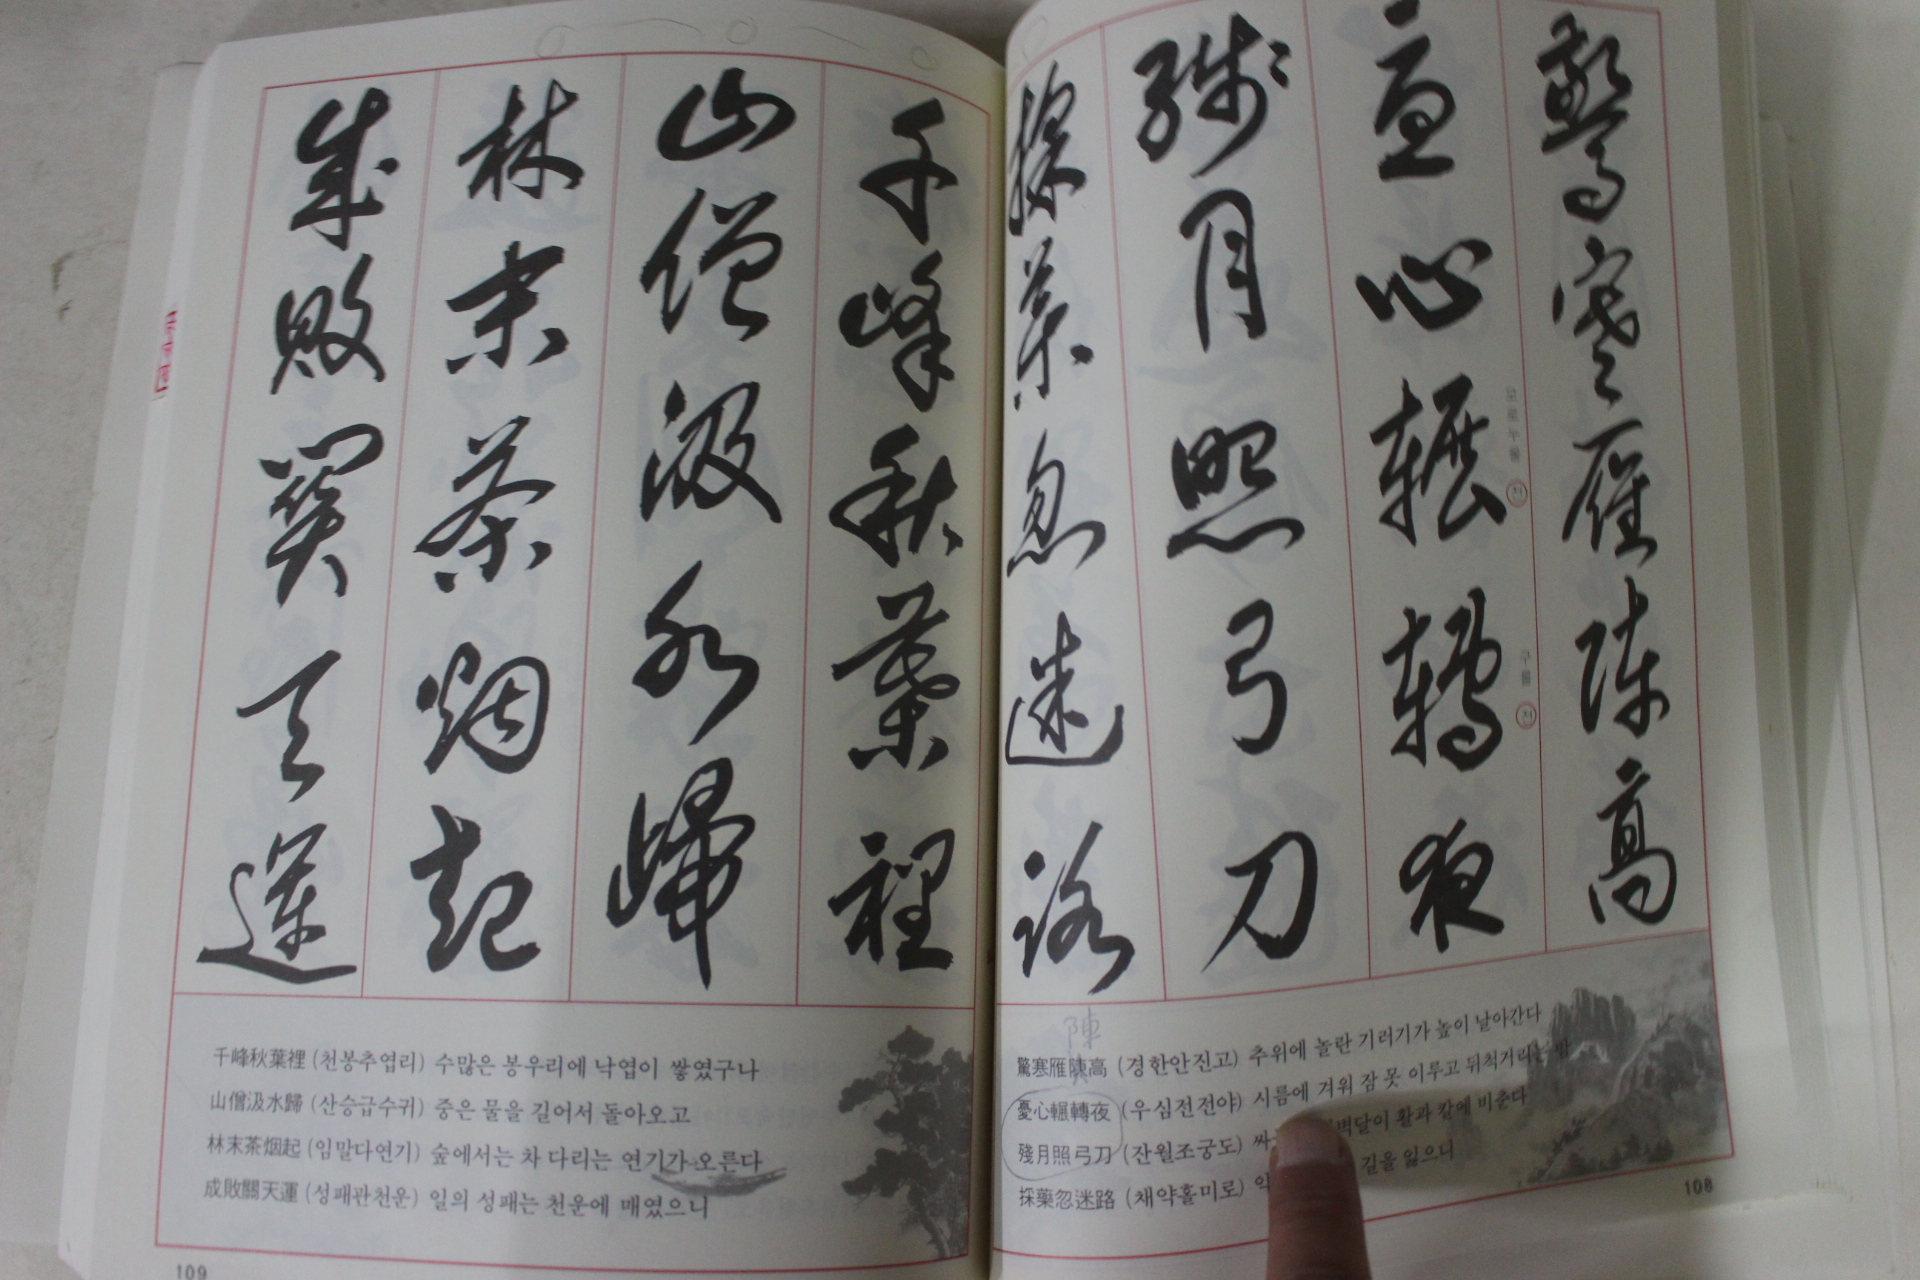 驚寒雁陳高
憂心輾轉夜
모로누울 전
구를 전
殘月照弓刀
採藥忽迷路
陳
驚寒雁陳高 (경한안진고) 추위에 놀란 기러기가 높이 날아간다
憂心輾轉夜 (우심전전야) 시름에 겨워 잠 못 이루고 뒤척거리는 밤
殘月照弓刀 (잔월조궁도) 싸 벽달이 활과 칼에 비춘다
採藥忽迷路 (채약홀미로) 약 길을 잃으니
108
千峰秋葉裡
山僧汲水歸
林末茶烟起
成敗關天運
千峰秋葉裡 (천봉추엽리) 수많은 봉우리에 낙엽이 쌓였구나
山僧汲水歸 (산승급수귀) 중은 물을 길어서 돌아오고
林末茶烟起 (임말다연기) 숲에서는 차 다리는 연기가 오른다
成敗關天運 (성패관천운) 일의 성패는 천운에 매였으니
109